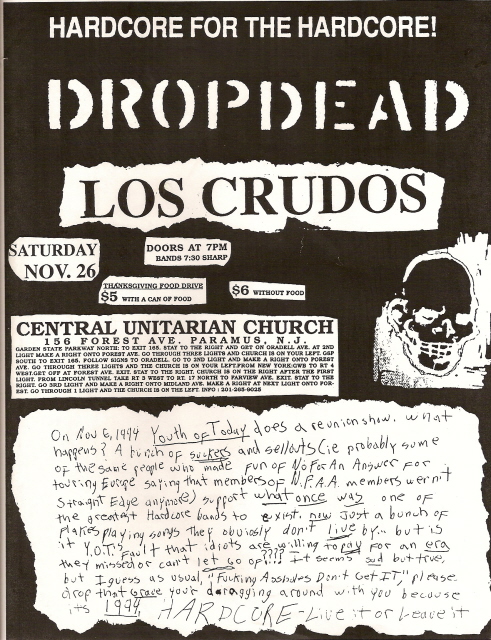 HARDCORE FOR THE HARDCORE!
DROPDEAD
LOS CRUDOS
SATURDAY
NOV. 26
DOORS AT 7PM
BANDS 7:30 SHARP
THANKSGIVING FOOD DRIVE
$5 WITH A CAN OF FOOD
$6 WITHOUT FOOD
CENTRAL UNITARIAN CHURCH
156 FOREST AVE. PARAMUS, N.J.
GARDEN STATE PARKWAY NORTH: TO EXIT 165. STAY TO THE RIGHT AND GET ON ORADELL AVE. AT 2ND
LIGHT MAKE A RIGHT ONTO FOREST AVE. GO THROUGH THREE LIGHTS AND CHURCH IS ON YOUR LEFT. GSP
SOUTH TO EXIT 165. FOLLOW SIGNS TO ORADELL. GO TO 2ND LIGHT AND MAKE A RIGHT ONTO FOREST
AVE. GO THROUGH THREE LIGHTS AND THE CHURCH IS ON YOUR LEFT.FROM NEW YORK:GWB TO RT 4
WEST.GET OFF AT FOREST AVE. EXIT. STAY TO THE RIGHT. CHURCH IS ON THE RIGHT AFTER THE FIRST
LIGHT. FROM LINCOLN TUNNEL TAKE RT 3 WEST TO RT. 17 NORTH TO FARVIEW AVE. EXIT. STAY TO THE
RIGHT. GO 3RD LIGHT AND MAKE A RIGHT ONTO MIDLAND AVE. MAKE A RIGHT AT NEXT LIGHT ONTO FOR-
EST. GO THROUGH 1 LIGHT AND THE CHURCH IS ON THE LEFT. INFO : 201-265-9028
On Nov 6, 1994 Youth of Today does a reunion show. what
happens? A bunch of suckers and sellouts (ie probably some
of the same people who made fun of No For An Answer for
touring Europe saying that members of N.F.A.A. members wern't
Straight Edge anymore) support what once was one of
the greatest Hardcore bands to exist. now Just a bunch of
flakes playing songs they obviously don't live by... but is
it Y.O.T.'s fault that idiots are willing to pay for an era
they missed or can't let go of???! It seems sad but true,
but I guess as usual, "Fucking Assholes Don't Get IT," please
drop that grave your dragging around with you because
its 1994, HARDCORE-Live it or Leave it